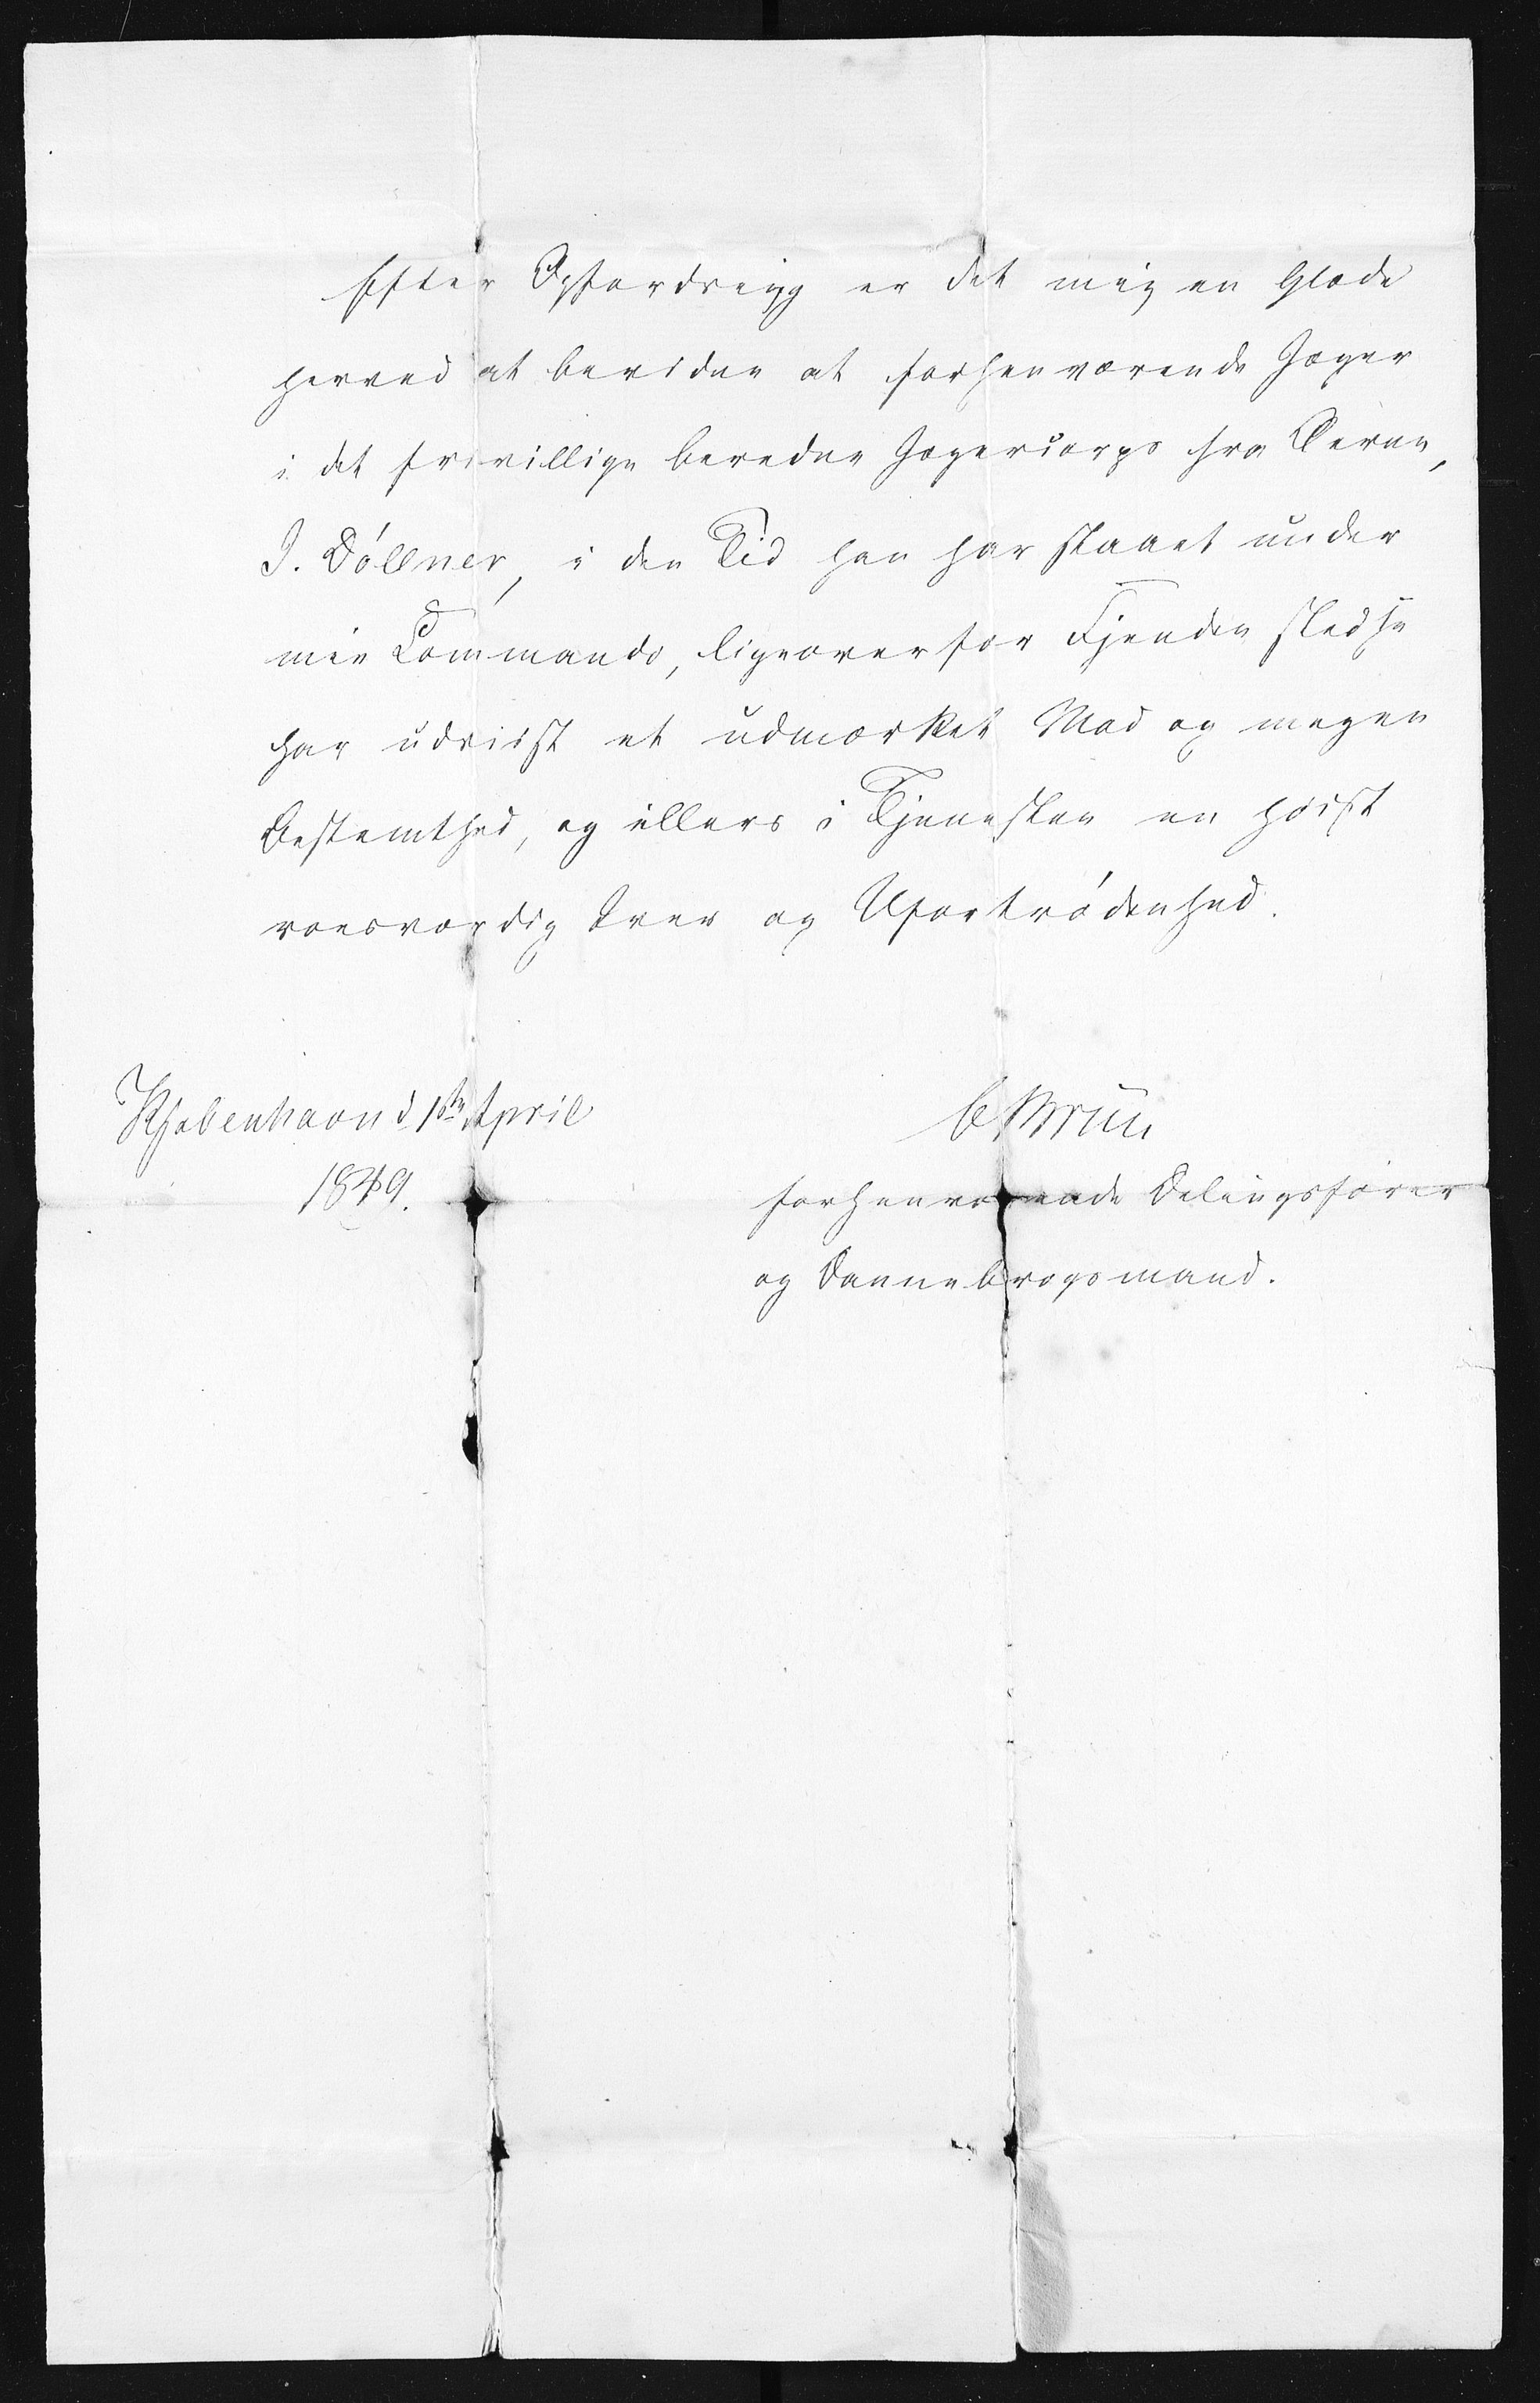 Efter Opfordring er det mig en Glæde
herved at bevidne at forhenværende Jæger
i det frivillige beredne Jægercorps fra Aeren,
J. Döllner, i den Tid han har staaet under
min Commando, ligeoverfor Fjenden stedse
har udviist et udmærket Mod og megen
Bestemthed, og ellers i Tjenesten en høist
roesværdig Iver og Ufortrødenhed.
Kjøbenhavn d. 1ste April
1849.
C Bruun
forhenværende Delingsfører
og Dannebrogsmand.